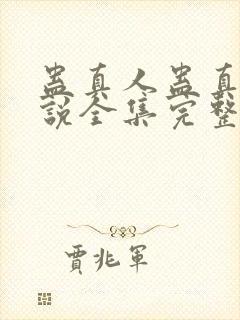 蛊真人蛊真
說全集完整
賈兆軍